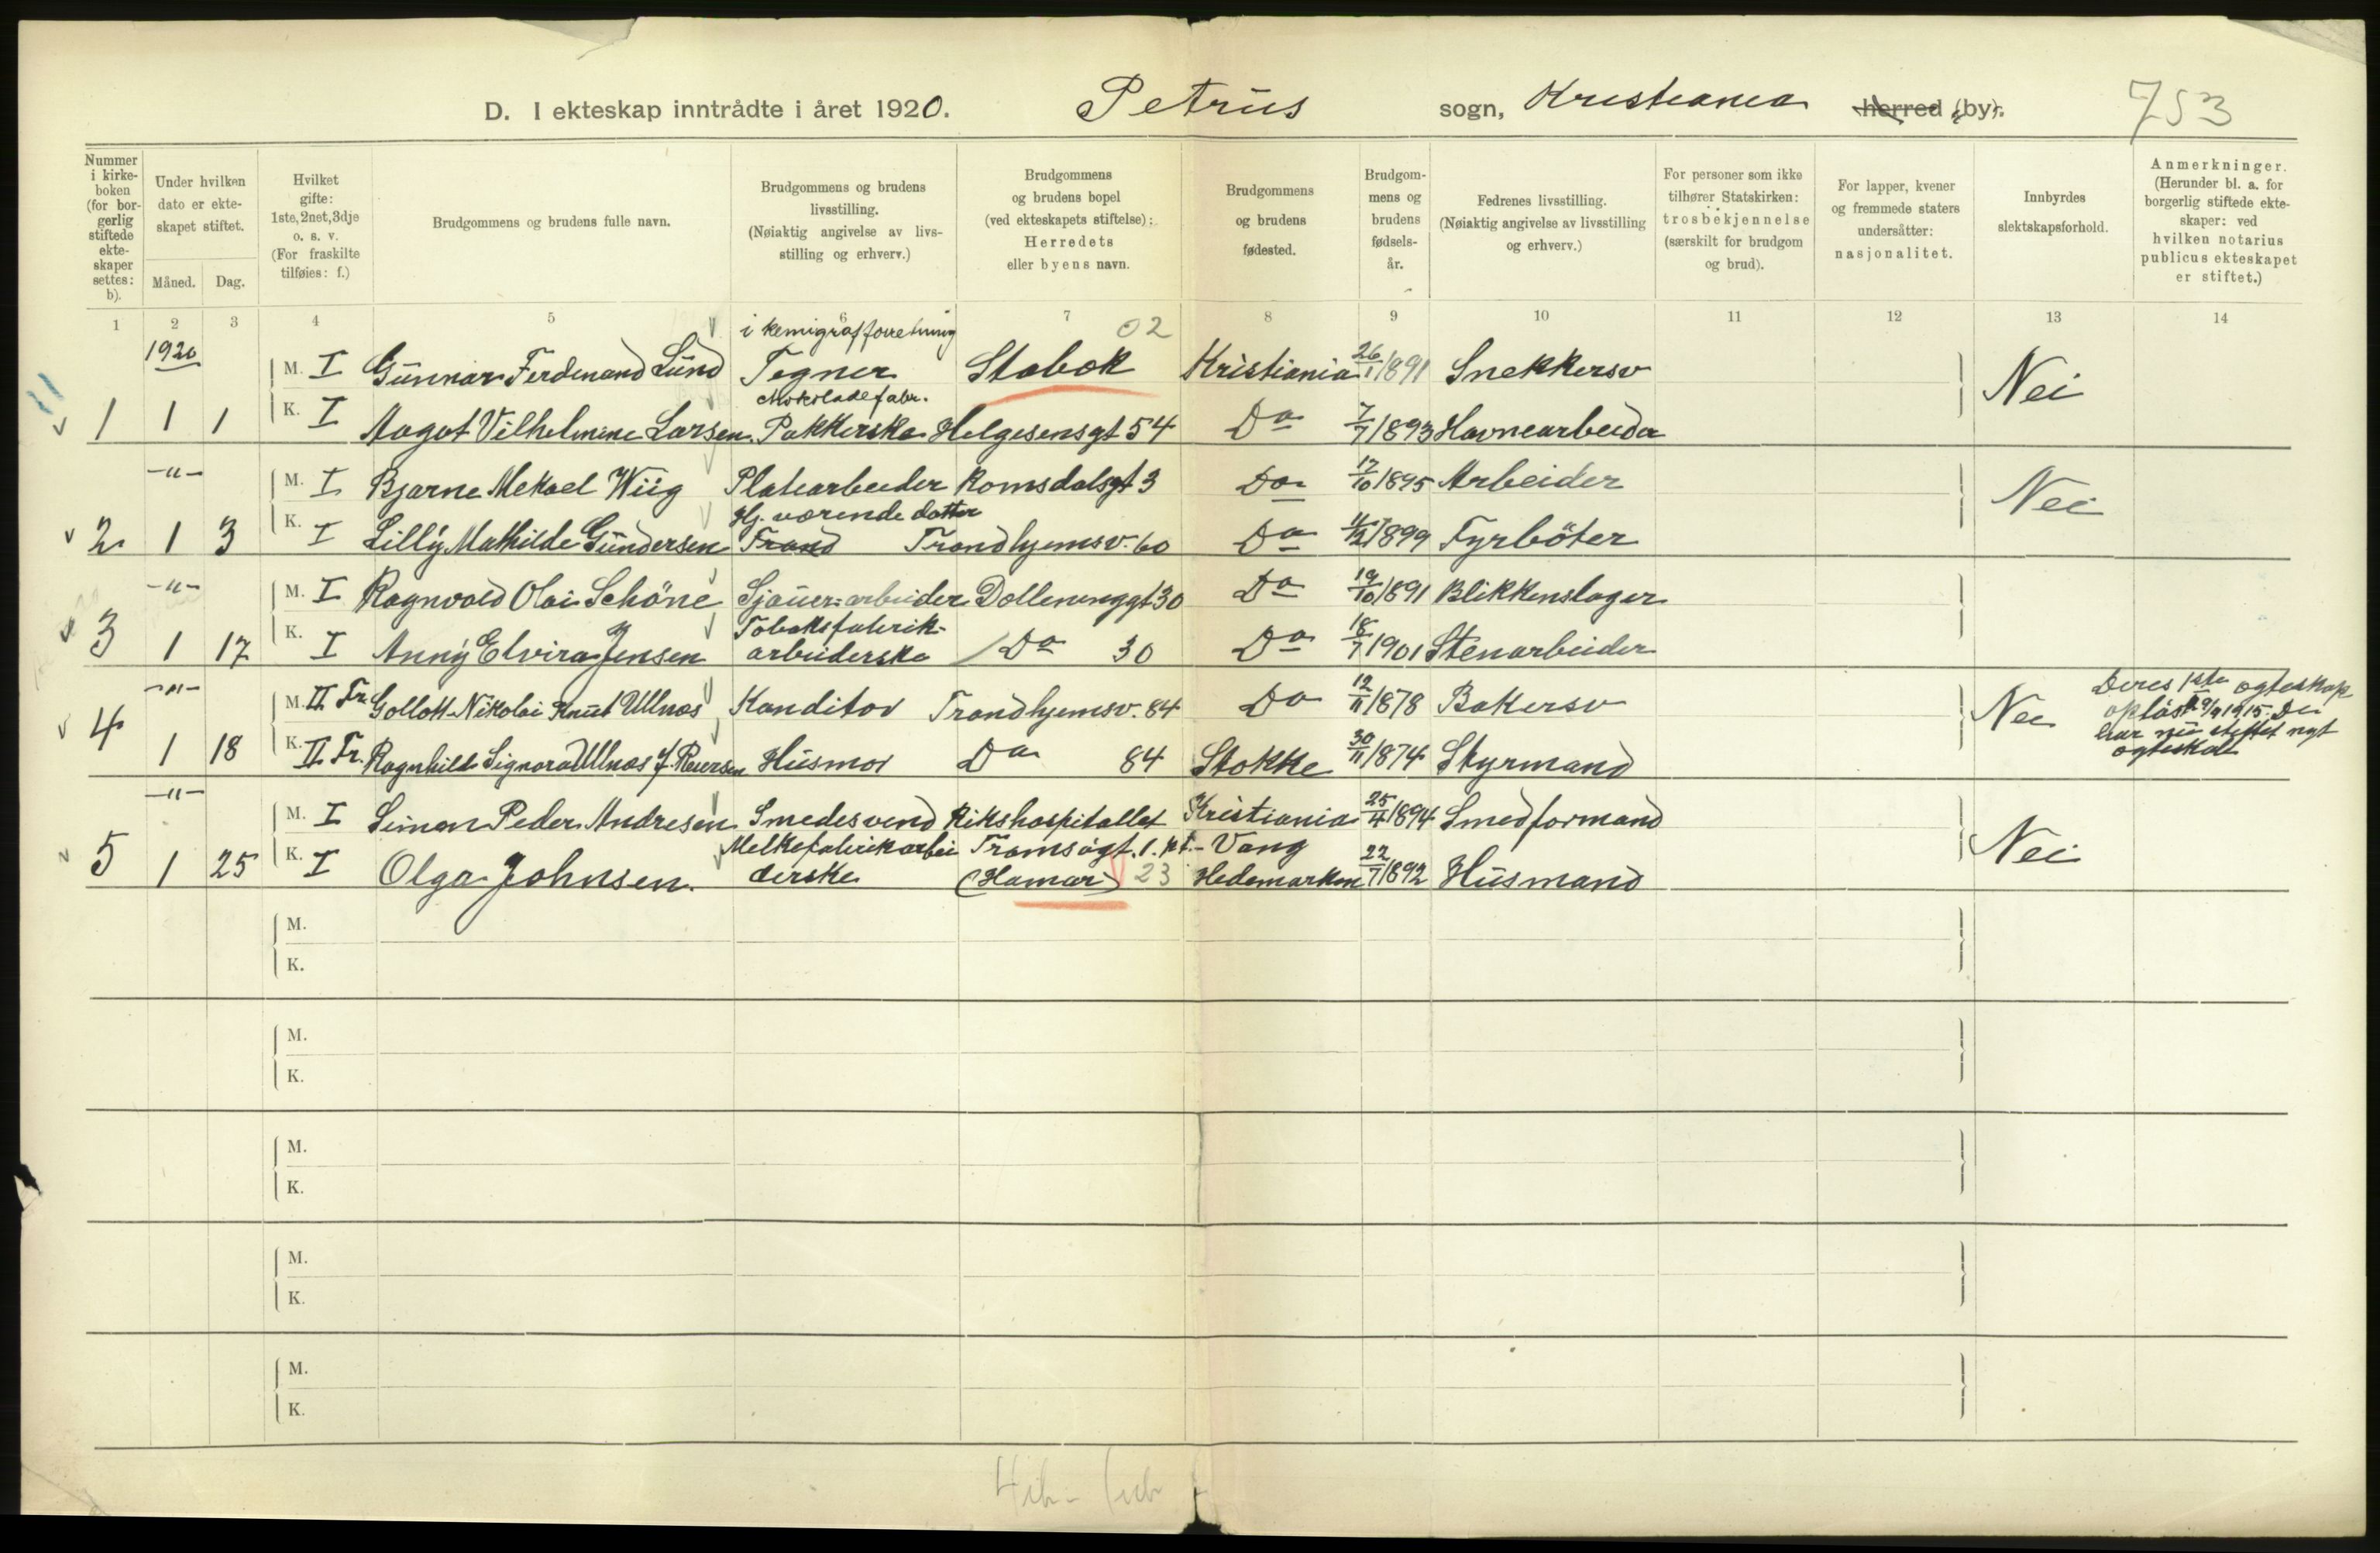 D. I ekteskap inntrådte i året 1920. Petrus sogn, Kristiania herred (by). 753
Nummer i kirkeboken (for borgerlig stiftede ekteskaper settes: b).
Under hvilken dato er ekteskapet stiftet.
Måned. Dag.
Hvilket gifte: 1ste, 2net, 3dje o. s. v. (For fraskilte tilføies: f.)
Brudgommens og brudens fulle navn.
Brudgommens og brudens livsstilling. (Nøiaktig angivelse av livsstilling og erhverv.)
Brudgommens og brudens bopel (ved ekteskapets stiftelse): Herredets eller byens navn.
Brudgommens og brudens fødested.
Brudgommens og brudens fødselsår.
Fedrenes livsstilling. (Nøiaktig angivelse av livsstilling og erhverv.)
For personer som ikke tilhører Statskirken: trosbekjennelse (særskilt for brudgom og brud).
For lapper, kvener og fremmede staters undersåtter: nasjonalitet.
Innbyrdes slektskapsforhold.
Anmerkninger. (Herunder bl. a. for borgerlig stiftede ekteskaper: ved hvilken notarius publicus ekteskapet er stiftet.)
1 2 3 4 5 6 7 8 9 10 11 12 13 14
1920 i kemigrafforretning 02
M. I Gunnar Ferdinand Lund Tegner Stabæk Kristiania 26/1 1891 Snekkersv Nei
Chokoladefabr.
1 1 1 K. I Aagot Vilhelmine Larsen Pakkerske Helgesensgt 54 Do 7/7 1893 Havnearbeider
-"- M. I Bjarne Mekael Wiig Platearbeider Romsdalsgt 3 Do 17/10 1895 Arbeider Nei
Hj. værende datter
2 1 3 K. I Lilly Mathilde Gundersen Trond Trondhjemsv. 60 Do 4/12 1899 Fyrböter
-"- M. I Ragnvald Olai Schöne Sjauer-arbeider Dælenenggt 30 Do 19/10 1891 Blikkenslager
Tobaksfabrik-
3 1 17 K. I Anny Elvira Jensen arbeiderske Do 30 Do 18/7 1901 Stenarbeider
-"- M. II Fr. Gollott Nikolai Knut Ullnæs Konditor Trondhjemsv. 84 Do 12/11 1878 Bakersv Nei
Deres 1ste ægteskap
opløst 9/9 1915. De
har nu stiftet nyt
ægteskab
4 1 18 K. II Fr. Ragnhild Signora Ullnæs f. Reiersen Husmor Do 84 Stokke 30/11 1874 Styrmand
-"- M. I Simon Peder Andresen Smedesvend Rikshospitallet Kristiania 25/4 1894 Smedformand Nei
Melkefabrikarbei Tromsøgt. 1. pt. - Vang
5 1 25 K. I Olga Johnsen. derske (Hamar) 23 Hedemarken 22/7 1892 Husmand
M.
K.
M.
K.
M.
K.
M.
K.
M.
K.